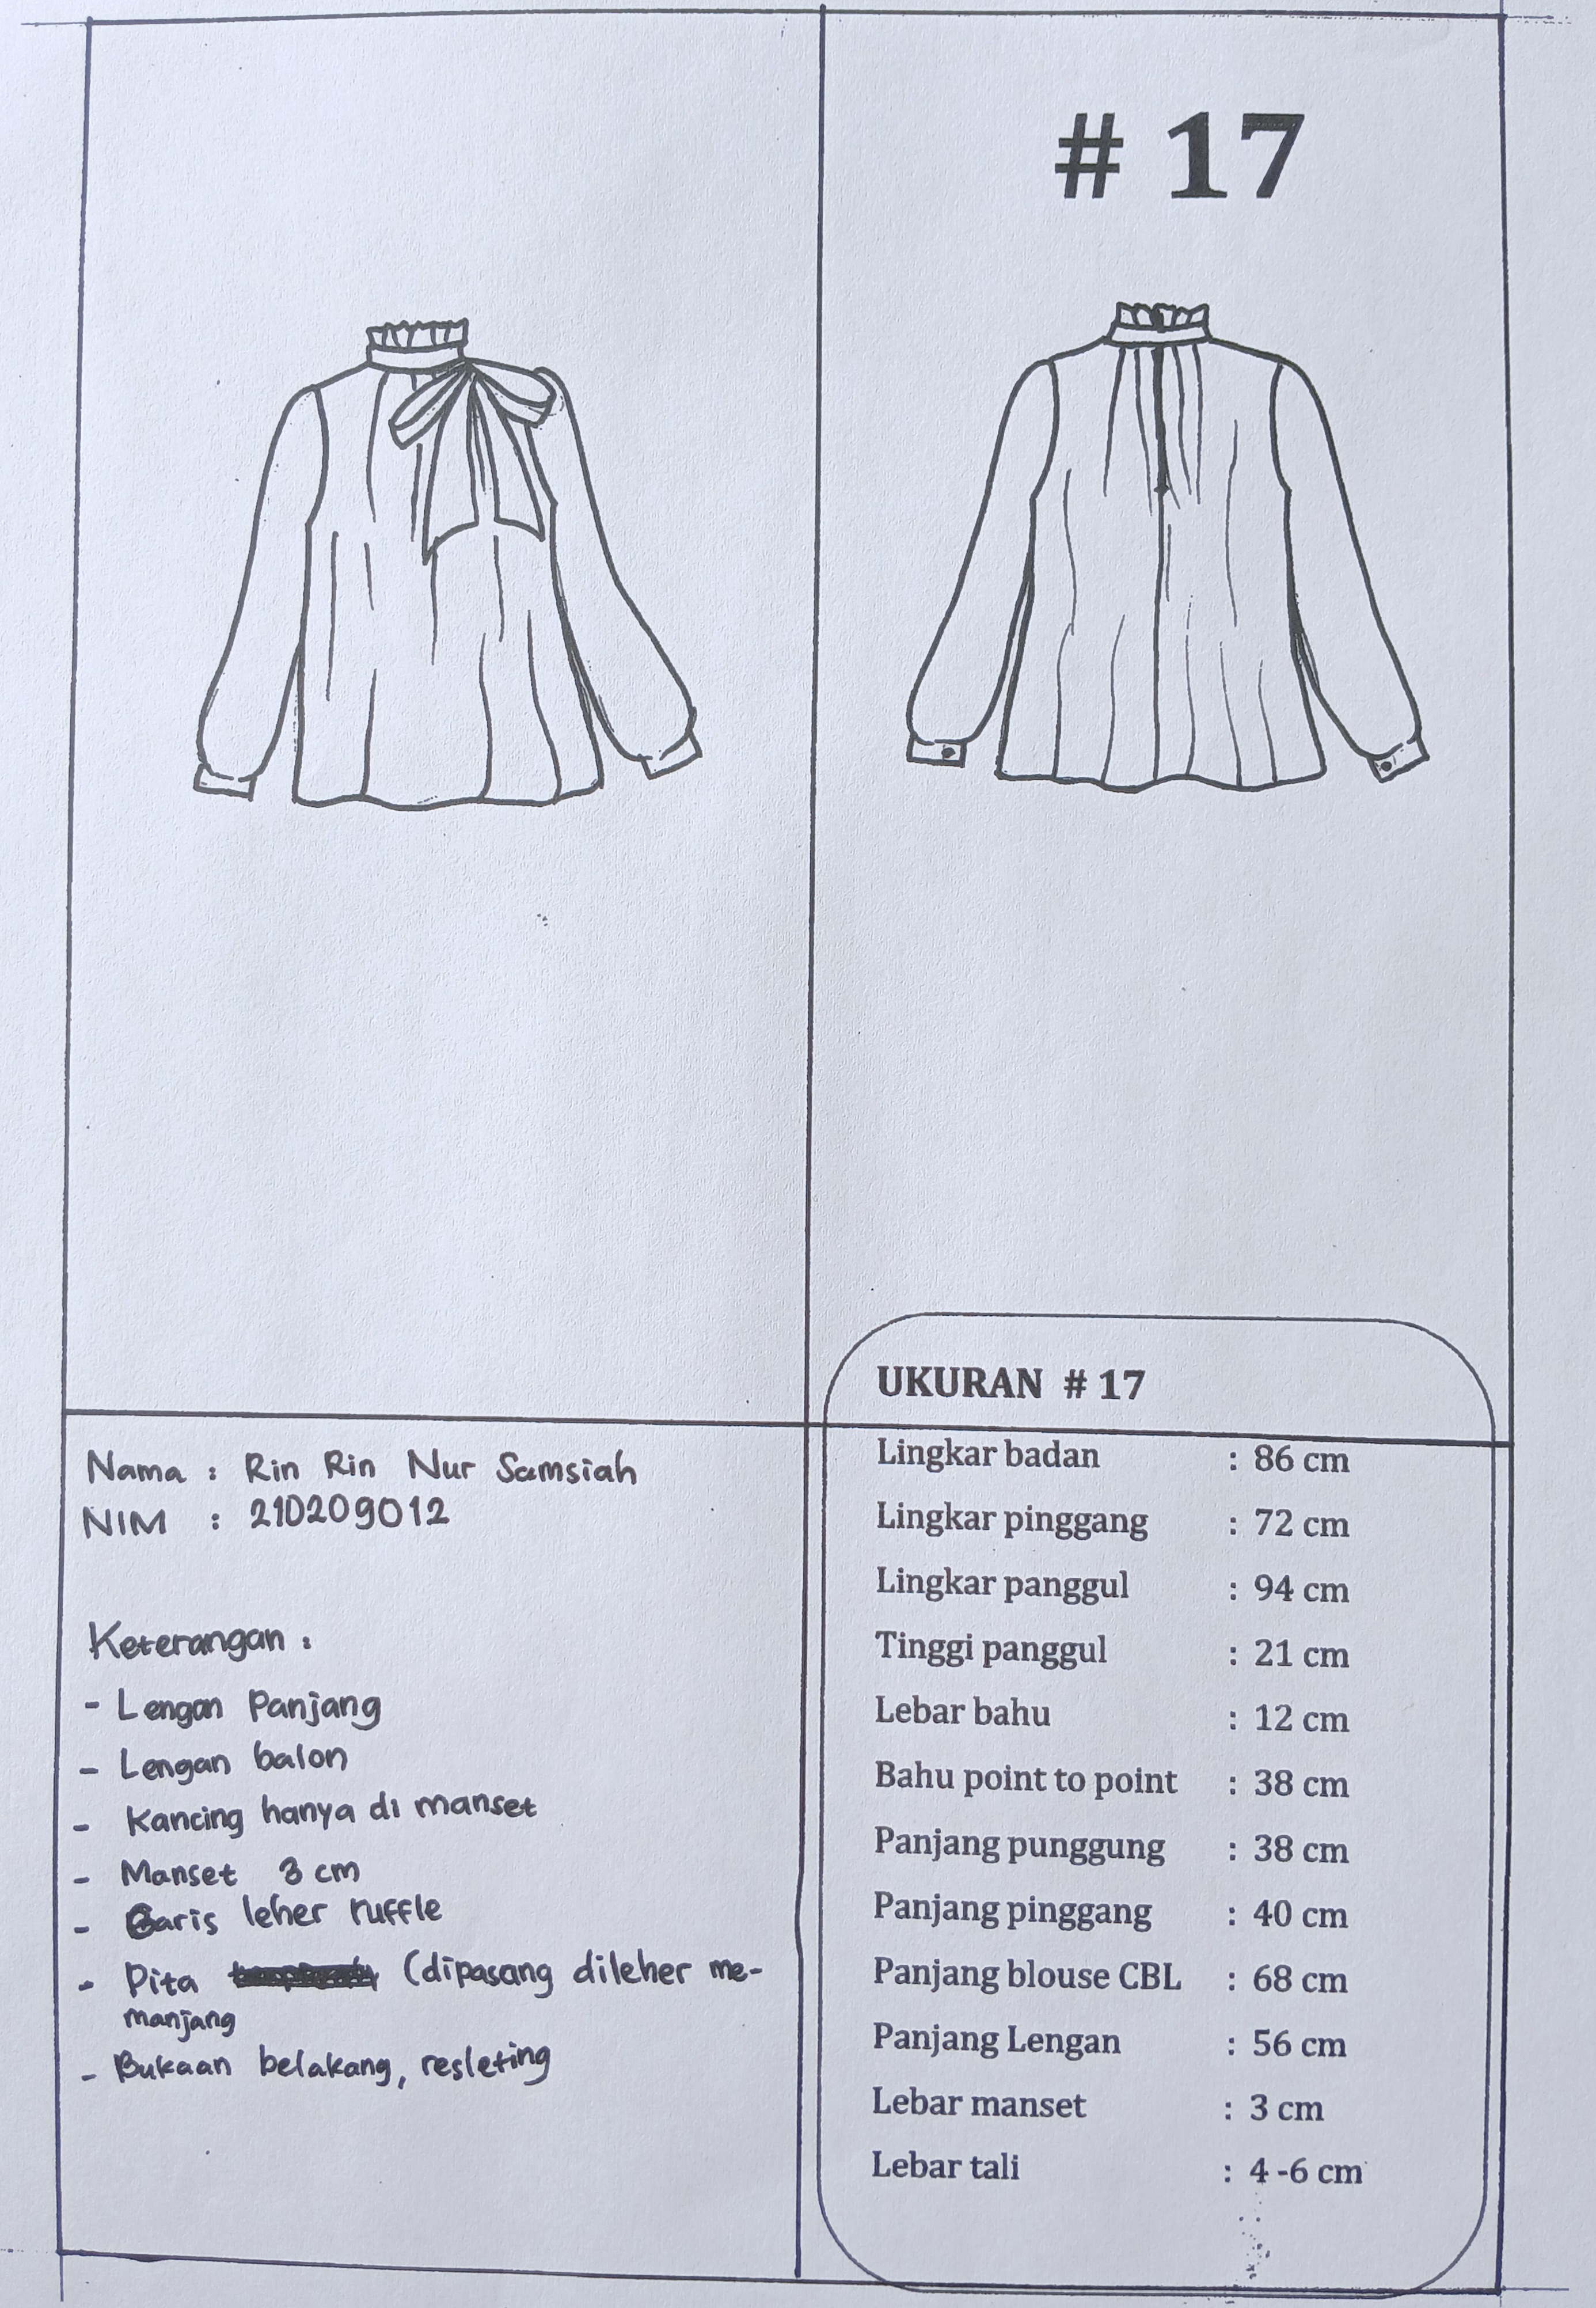 # 17
Nama : Rin Rin Nur Samsiah
NIM : 210209012
Keterangan :
- Lengan Panjang
- Lengan balon
- Kancing hanya di manset
- Manset 3 cm
- Garis leher ruffle
- Pita (dipasang dileher me-
manjang
- Bukaan belakang, resleting
UKURAN # 17
Lingkar badan : 86 cm
Lingkar pinggang : 72 cm
Lingkar panggul : 94 cm
Tinggi panggul : 21 cm
Lebar bahu : 12 cm
Bahu point to point : 38 cm
Panjang punggung : 38 cm
Panjang pinggang : 40 cm
Panjang blouse CBL : 68 cm
Panjang Lengan : 56 cm
Lebar manset : 3 cm
Lebar tali : 4 -6 cm